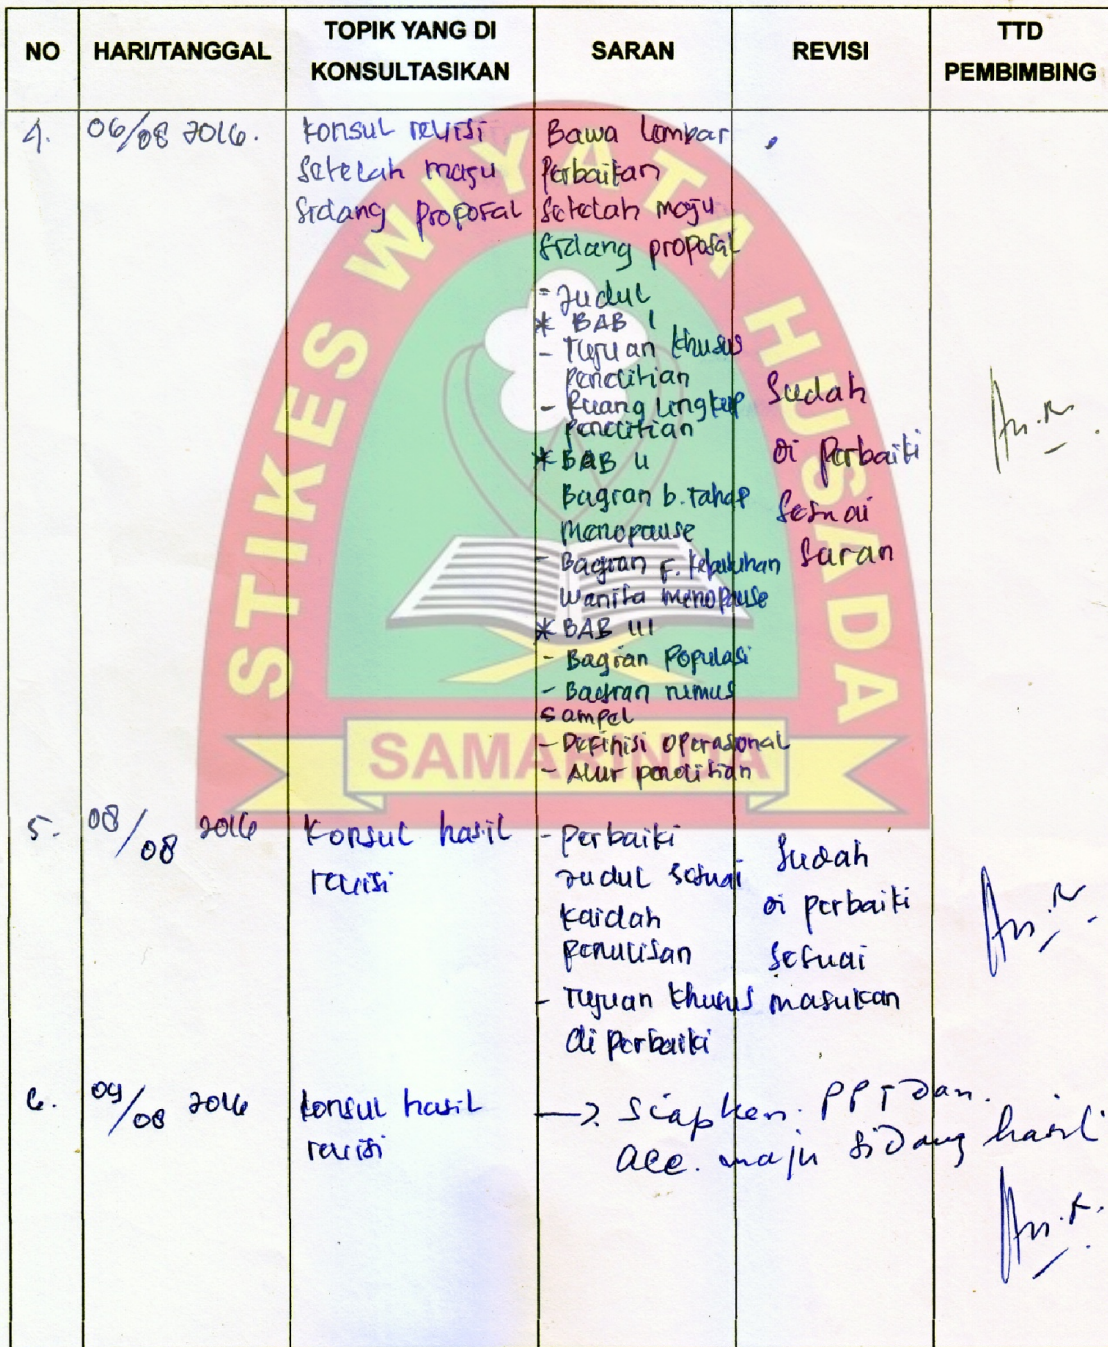 NO HARI/TANGGAL TOPIK YANG DI KONSULTASIKAN SARAN REVISI TTD PEMBIMBING
4. 06/08 2016. konsul revisi
setelah maju
sidang proposal
Bawa lembar
Perbaikan
setelah maju
sidang proposal
- Judul
* BAB I
- Tujuan khusus
penelitian
- Ruang lingkup
penelitian
* BAB II
Bagian b. tahap
menopause
- Bagian F. kebutuhan
wanita menopause
* BAB III
- Bagian Populasi
- Bagian rumus
sampel
- Definisi operasional
- Alur penelitian
Sudah
di perbaiki
sesuai
saran
5. 08/08 2016 Konsul hasil
revisi
- perbaiki
Judul sesuai
kaidah
penulisan
- Tujuan khusus
di perbaiki
Sudah
di perbaiki
sesuai
masukan
6. 09/08 2016 konsul hasil
revisi
→ Siapken. PPT dan.
acc. maju sidang hasil
STIKES WIYATA HUSADA
SAMARINDA